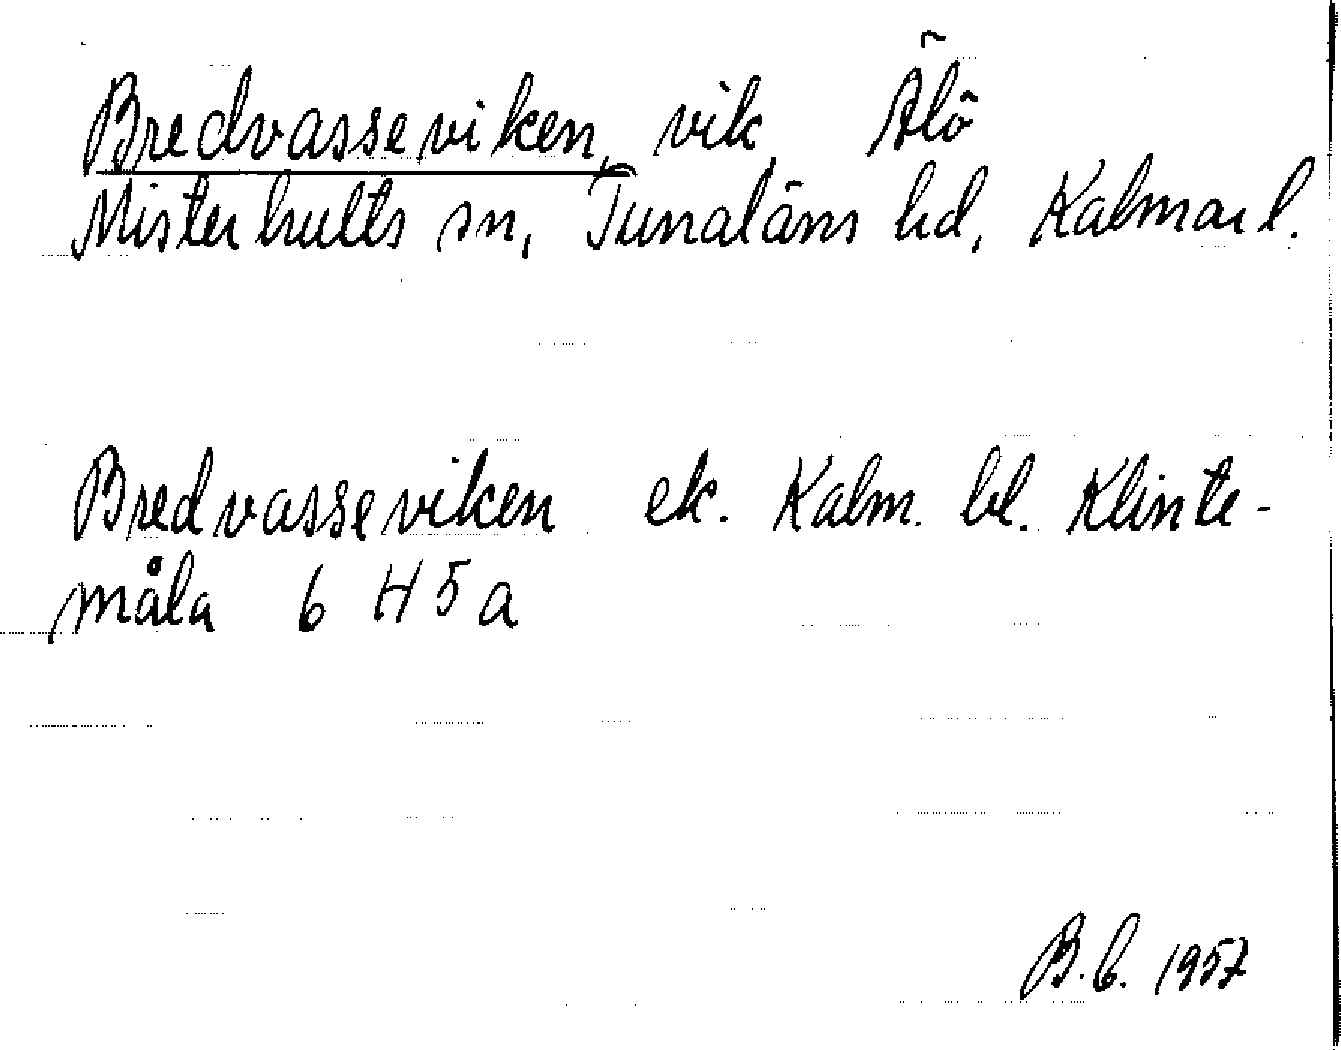 Bredvasseviken, vik Älö
Misterhults sn, Tunaläns hd, Kalmar l.
Bredvasseviken ek. Kalm. bl. Klinte-
måla 6 H 5 a
B.b. 1957